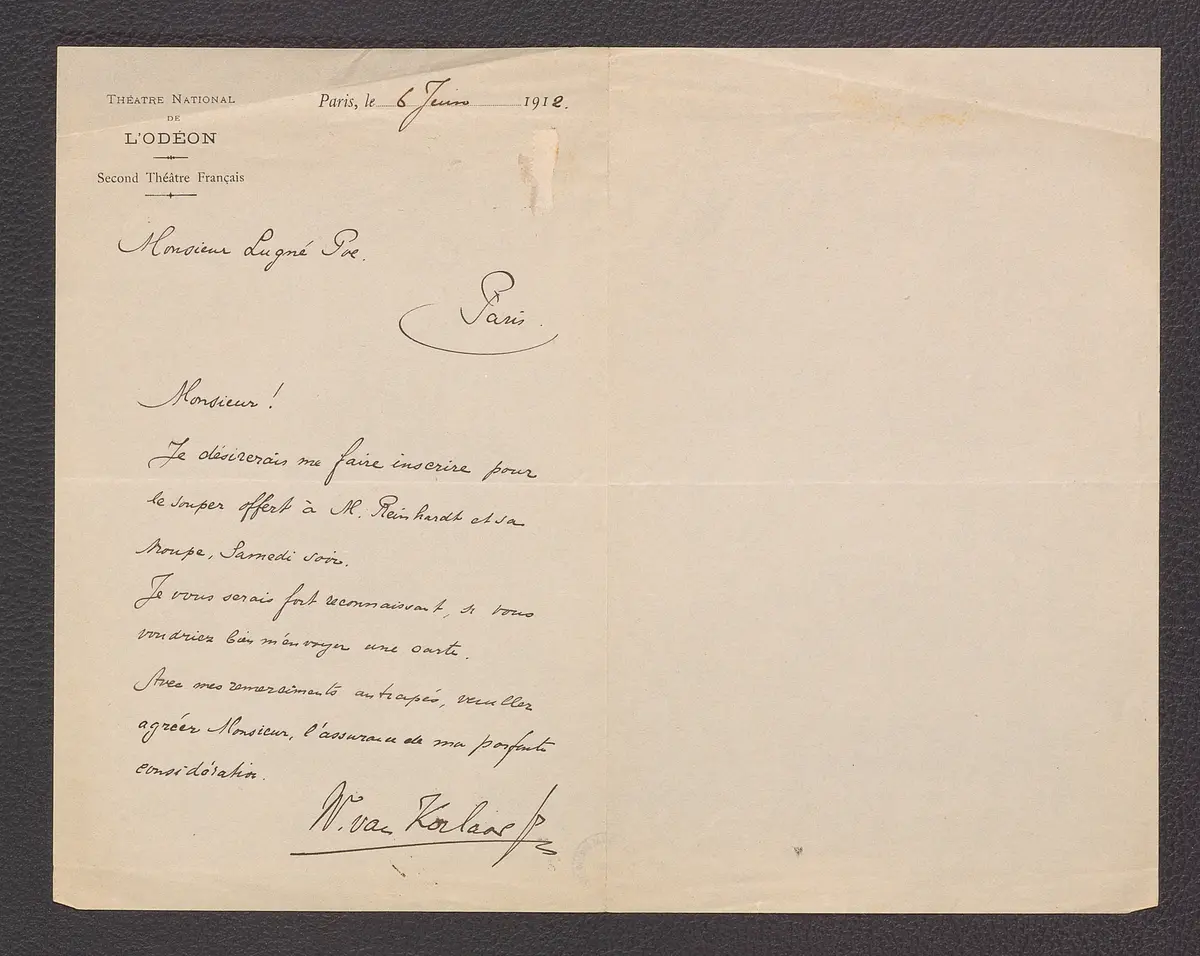 THÉATRE NATIONAL
DE
L'ODÉON
Second Théâtre Français
Paris, le 6 Juin 1912.
Monsieur Lugné Poe.
Paris.
Monsieur !
Je désirerais me faire inscrire pour
le souper offert à M. Reinhardt et sa
troupe, Samedi soir.
Je vous serais fort reconnaissant, si vous
voudriez bien m'envoyer une carte.
Avec mes remerciments anticipés, veuillez
agréer Monsieur, l'assurance de ma parfaite
considération.
W. van